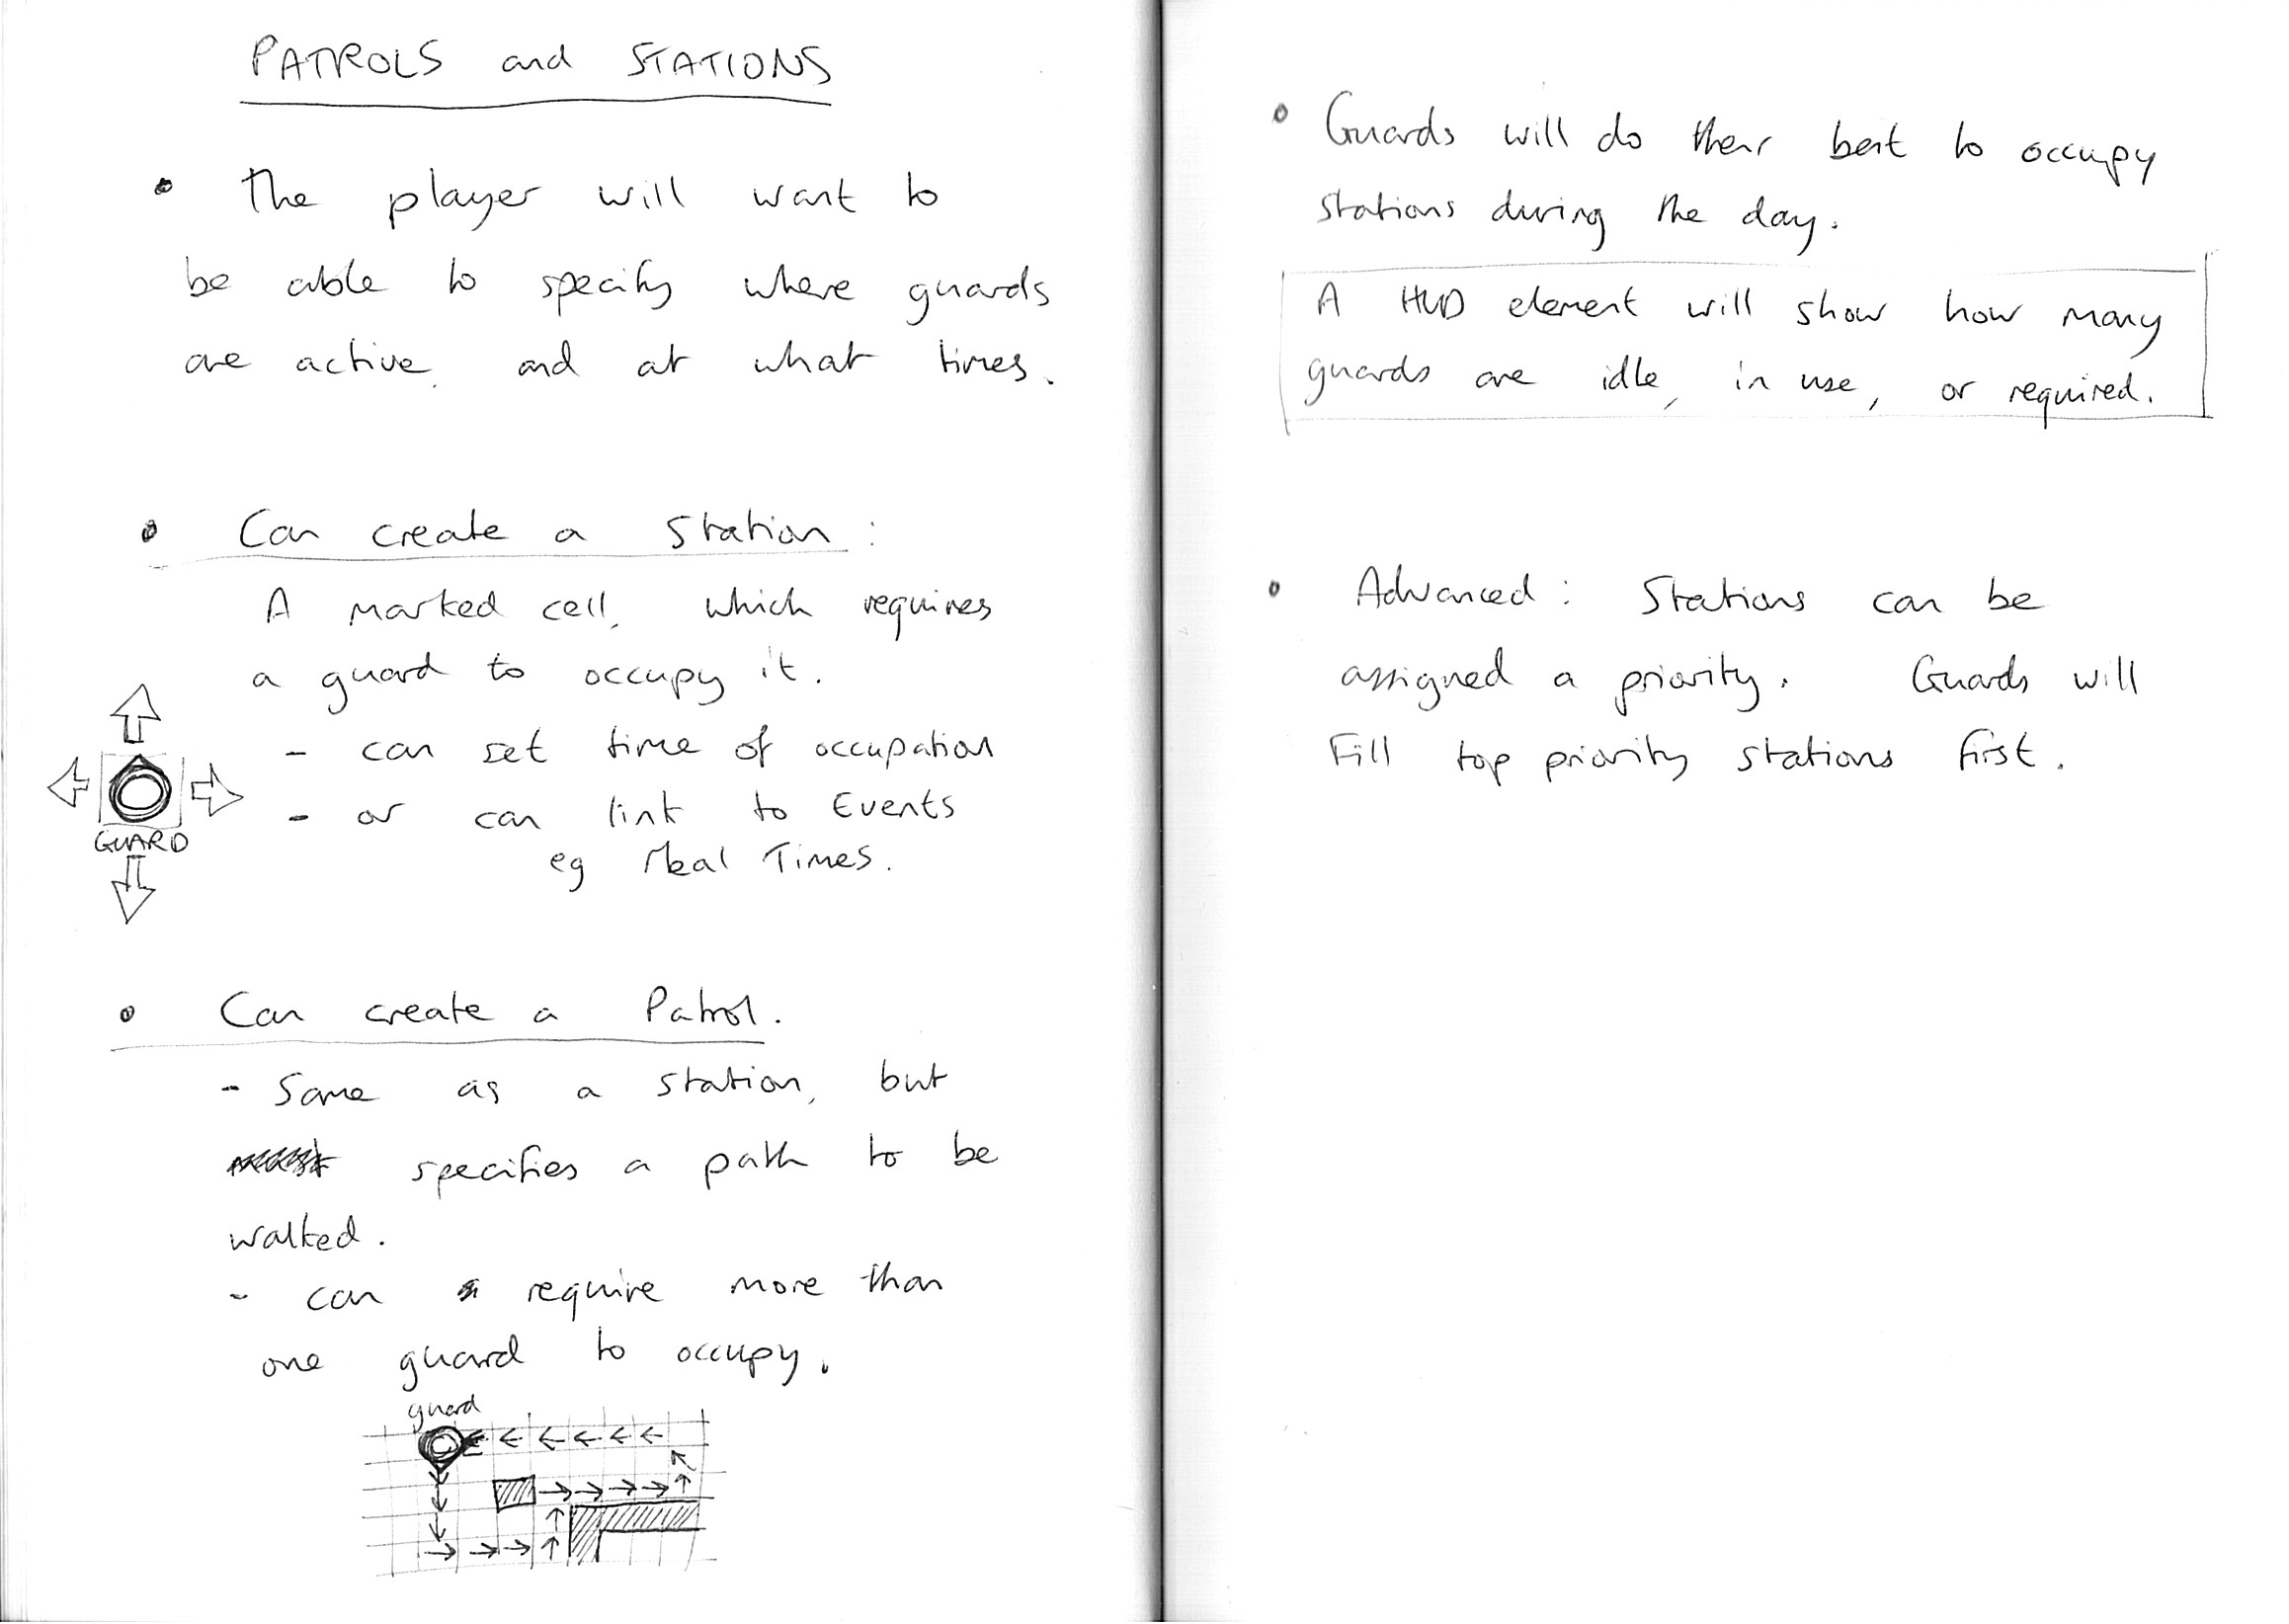 PATROLS and STATIONS
• The player will want to
be able to specify where guards
are active, and at what times.
• Can create a Station:
A marked cell, which requires
a guard to occupy it.
- can set time of occupation
- or can link to Events
eg Meal Times.
GUARD
• Can create a Patrol.
- Same as a station, but
specifies a path to be
walked.
- can require more than
one guard to occupy.
guard
• Guards will do their best to occupy
stations during the day.
A HUD element will show how many
guards are idle, in use, or required.
• Advanced: Stations can be
assigned a priority. Guards will
Fill top priority stations first.